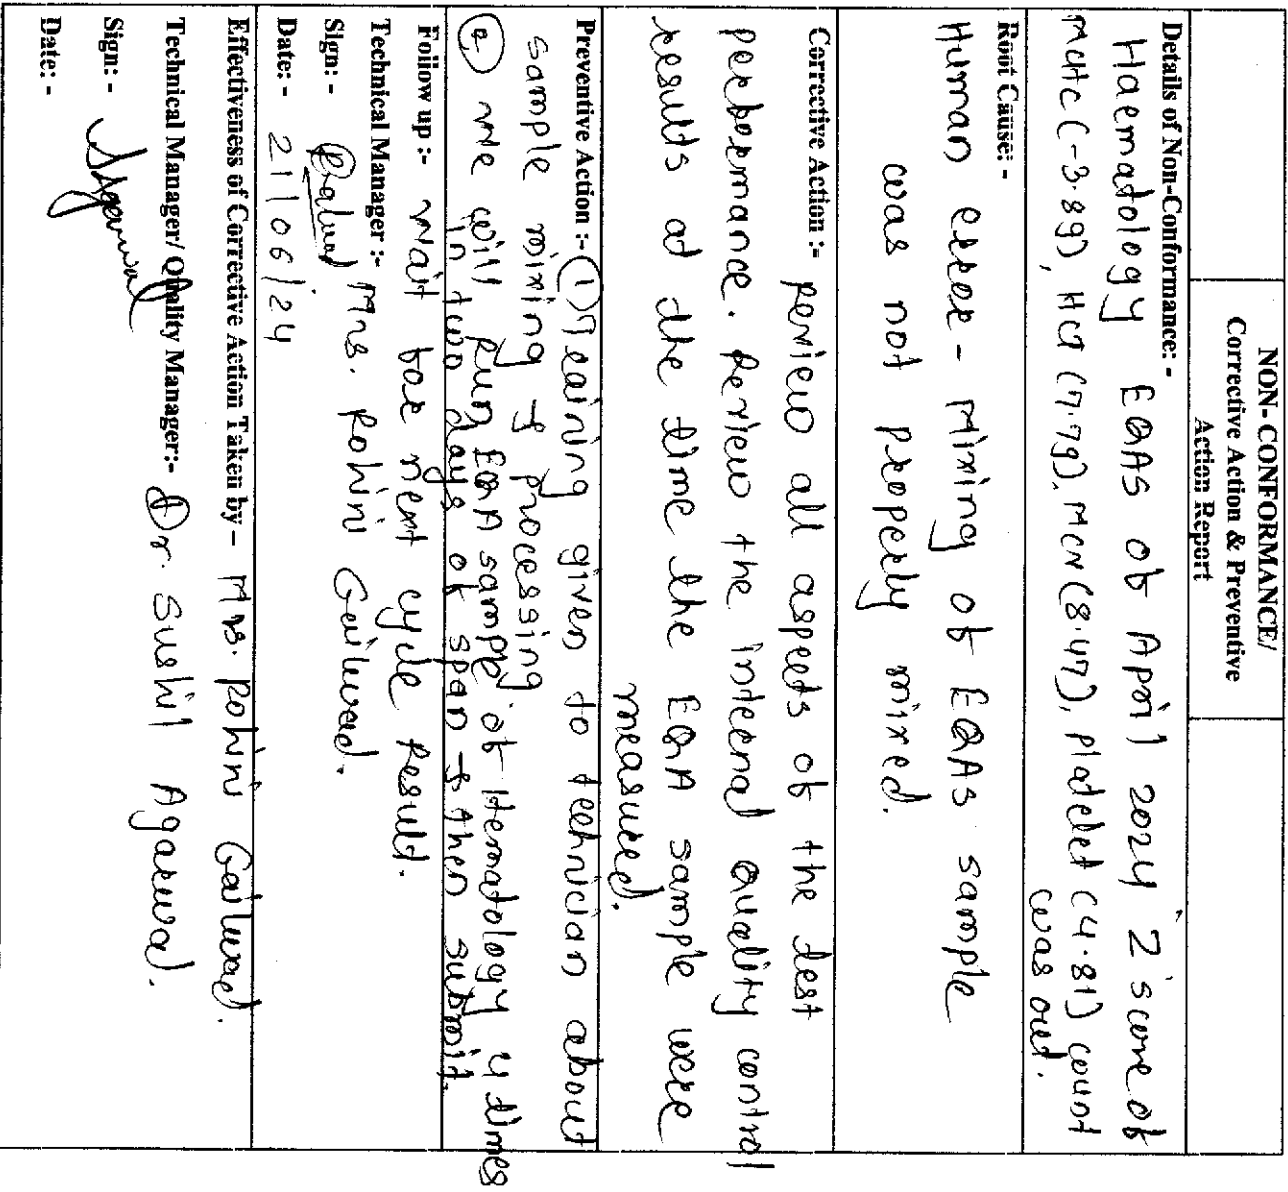 NON-CONFORMANCE/
Corrective Action & Preventive
Action Report
Details of Non-Conformance: -
Haematology EQAS of April 2024 Z score of
MCHC (-3.89), HCT (7.79), MCV (8.47), Platelet (4.81) count
was out.
Root Cause: -
Human error - Mixing of EQAS sample
was not properly mixed.
Corrective Action :- Review all aspects of the test
performance. Review the internal quality control
results at the time the EQA sample were
measured.
Preventive Action :- (1) Training given to technician about
sample mixing & processing
(2) We will run EQA sample of Hematology 4 times
in two days of span & then submit.
Follow up :- Wait for next cycle Result.
Technical Manager :- Mrs. Rohini Gaikwad.
Sign: -
Date: - 21/06/24
Effectiveness of Corrective Action Taken by – Mrs. Rohini Gaikwad.
Technical Manager/ Quality Manager:- Dr. Sushil Agarwal.
Sign: - SAgarwal
Date: -